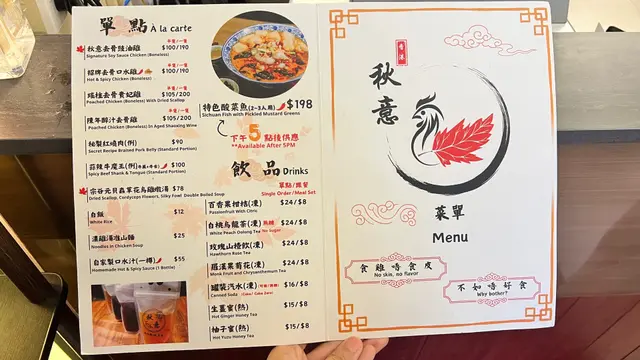 單點 À la carte
半隻/一隻
秋意去骨豉油雞 $100/190
Signature Soy Sauce Chicken (Boneless)
半隻/一隻
招牌去骨口水雞 $100/190
Hot & Spicy Chicken (Boneless)
半隻/一隻
瑤柱去骨貴妃雞 $105/200
Poached Chicken (Boneless) With Dried Scallop
半隻/一隻
陳年醉汁去骨雞 $105/200
Poached Chicken (Boneless) in Aged Shaoxing Wine
秘製紅燒肉(例) $90
Secret Recipe Braised Pork Belly (Standard Portion)
蒜辣牛魔王(例)(牛𦟌+牛舌) $100
Spicy Beef Shank & Tongue (Standard Portion)
宗谷元貝蟲草花烏雞燉湯 $78
Dried Scallop, Cordyceps Flowers, Silky Fowl Double Boiled Soup
白飯 $12
White Rice
濃雞湯稻庭麵 $25
Noodles in Chicken Soup
自家製口水汁(一樽) $55
Homemade Hot & Spicy Sauce (1 Bottle)
特色酸菜魚(2-3人用) $198
Sichuan Fish with Pickled Mustard Greens
下午5點後供應
**Available After 5PM
飲品 Drinks
單點/跟餐
Single Order/Meal Set
百香果柑桔(凍) $24/$8
Passionfruit With Citric
白桃烏龍茶(凍) 無糖 $24/$8
White Peach Oolong Tea No Sugar
玫瑰山楂飲(凍) $24/$8
Hawthorn Rose Tea
羅漢果菊花(凍) $24/$8
Monk Fruit and Chrysanthemum Tea
罐裝汽水(凍) (可樂/無糖) $16/$8
Canned Soda (Coke/ Coke Zero)
生薑蜜(熱) $15/$8
Hot Ginger Honey Tea
柚子蜜(熱) $15/$8
Hot Yuzu Honey Tea
秋意
香港
秋意
菜單
Menu
食雞唔食皮
No skin, no flavor
不如唔好食
Why bother?